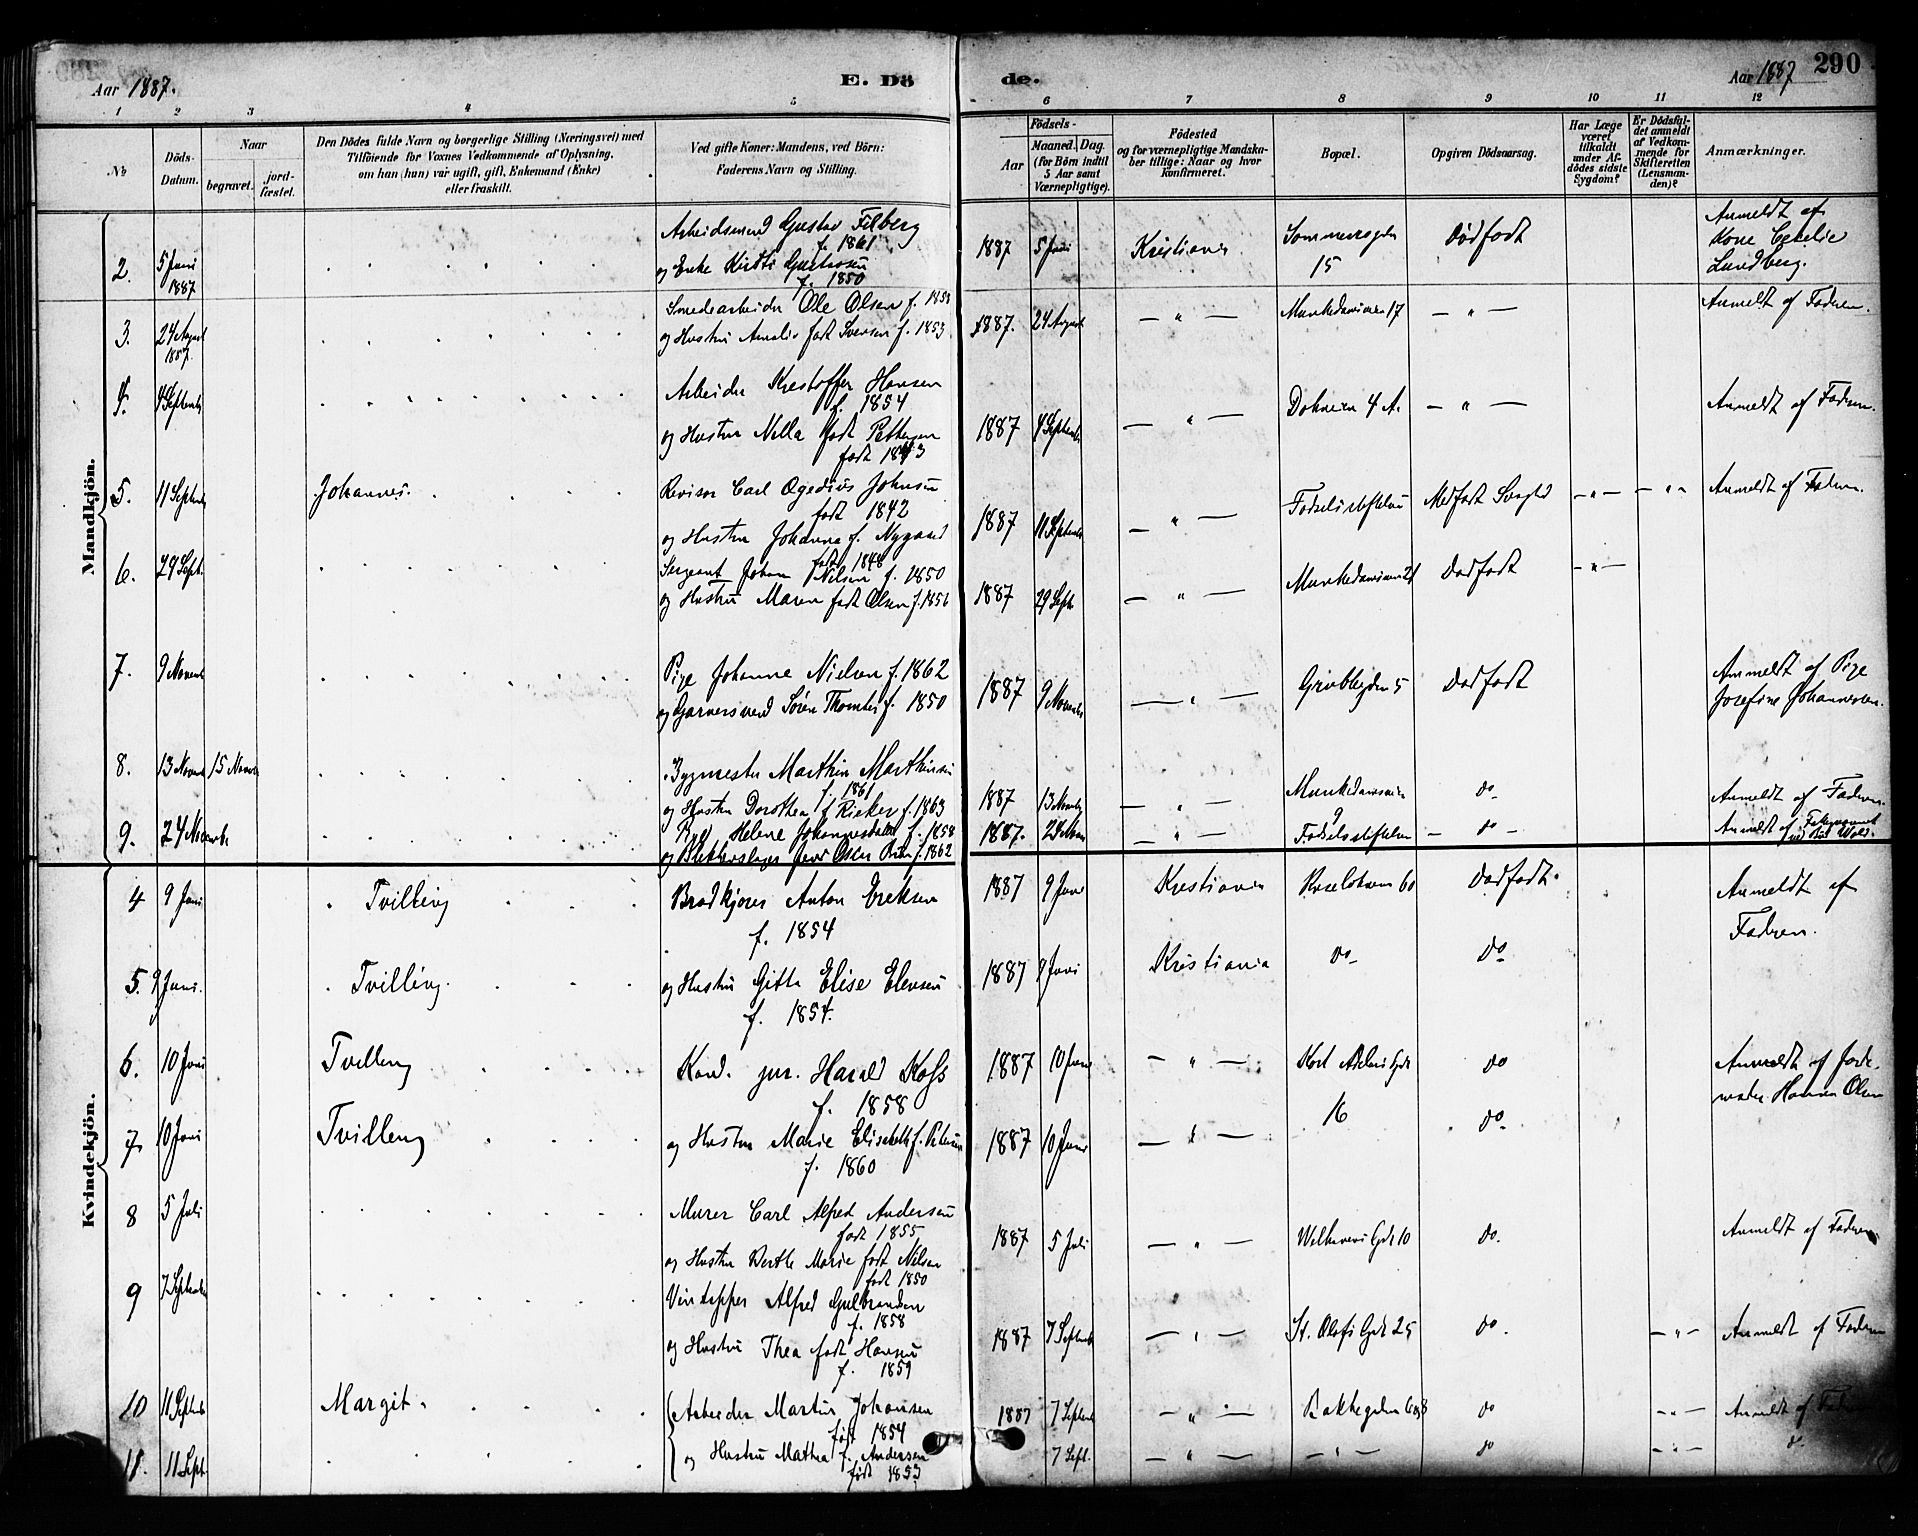 Aar 1887.
E. Dö
de.
Aar 1887
290
1 2 3 4 5 6 7 8 9 10 11 12
No
Döds-Datum.
Naar
begravet.
jord-fæstet.
Den Dödes fulde Navn og borgerlige Stilling (Næringsvei) med
Tilföiende for Voxnes Vedkommende af Oplysning,
om han (hun) var ugift, gift, Enkemand (Enke)
eller fraskilt.
Ved gifte Koner: Mandens, ved Börn:
Faderens Navn og Stilling.
Födsels-
Aar
Maaned. Dag.
(for Börn indtil
5 Aar samt
Værnepligtige).
Födested
og for værnepligtige Mandska-
ber tillige: Naar og hvor
konfirmeret.
Bopæl.
Opgiven Dödsaarsag.
Har Læge
været
tilkaldt
under Af-
dödes sidste
Sygdom?
Er Dödsfal-
det anmeldt
af Vedkom-
mende for
Skifteretten
(Lensman-
den)?
Anmærkninger.
Mandkjön.
2. 5 Juni 1887
Arbeidsmand Gustav Filberg
f. 1861
og Enke Kirsti Gustavsen
f. 1850
1887 5 Juni Kristiania 15 Dödfödt
Anmeldt af
Kone Cecelie
Lundberg.
3. 24 August 1887.
Smedearbeider Ole Olsen f. 1858
og Hustru Amalie födt Iversen f. 1853
1887. 24 August — " — Munkedamsveien 17 — " — Anmeldt af Faderen.
4. 4 Septemb
Arbeider Kristoffer Hansen
f. 1854
og Hustru Nella födt Pettersen
födt 1843
1887 4 Septemb — " — Dokveien 4 A. — " — Anmeldt af Faderen.
5. 11 Septemb Johannes.
Revisor Carl Egedius Johnsen
födt 1842
og Hustru Johanna f. Nygaard
födt 1848
1887 11 Septemb — " — Födselsstiftelsen Medfödt Svaghed — " — — " — Anmeldt af Faderen.
6. 29 Sept.
Sergeant Johan Nilsen f. 1850
og Hustru Maren födt Olsen f. 1856
1887 29 Sept — " — Munkedamsveien 21 Dödfödt — " —
7. 9 Novemb
Pige Johanne Nielsen f. 1862
og Garversvend Sören Thomter f. 1850
1887 9 Novemb — " — Grubbegaden 5 Dödfödt
Anmeldt af Pige
Josefine Johannesen.
8. 13 Novemb 15 Novem
Bygmester Marthin Marthinsen
f. 1861
og Hustru Dorothea f. Rieker f. 1863
1887 13 Novemb — " — Munkedamsveien 9 do Anmeldt af Faderen.
9. 24 Novemb.
Pige Helene Johannesdatter f. 1858
og Blikkenslager f. 1862
1887. 24 Nov — " — Födselsstiftelsen — do — Anmeldt af
Kvindekjön.
4 9 Juni Tvilling
Brödkjörer Anton Ereksen
f. 1854
1887 9 Juni Kristiania 60 Dödfödt.
Anmeldt af
Faderen.
5. 9 Juni. Tvilling.
og Hustru Gitta Elise Elevsen
f. 1854.
1887 9 Juni Kristiania do do
6. 10 Juni Tvilling
Kand. jur. Harald Koss
f. 1858
1887 10 Juni — " — Kort Adelers Gade 16 do
Anmeldt af Jorde-
moder Hanna Olsen
7. 10 Juni Tvilling
og Hustru Marie Elisabeth f. Petersen
f. 1860
1887 10 Juni — " — do
8 5 Juli
Murer Carl Alfred Andersen
födt 1855
og Hustru Berthe Marie födt Nilsen
födt 1850
1887 5 Juli — " — Welhavens Gade 10 do. Anmeldt af Faderen
9 7 Septemb
Vintapper Alfred Gulbrandsen
f. 1858
og Hustru Thea födt Hansen
f. 1859
1887 7 Septemb — " — St. Olafs Gade 25 do. — " — Anmeldt af Faderen
10 11 Septemb Margit.
Arbeider Martin Johansen
födt 1854
1887 7 Septemb — " — do — " — Anmeldt af Faderen
11. 11 Sept.
og Hustru Mathea f. Andersen
födt 1853
7 Sept. — " — — " — do — " — do